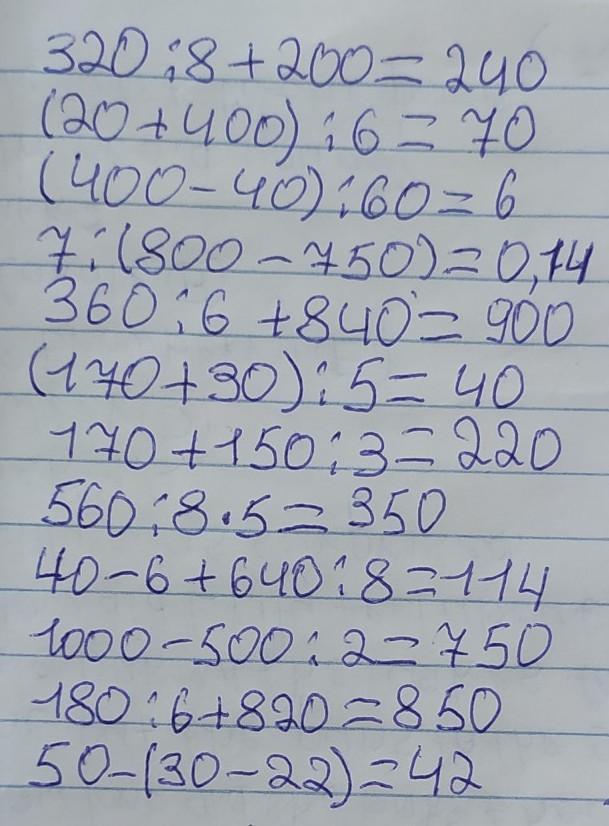 320:8+200=240
(20+400):6=70
(400-40):60=6
7:(800-750)=0,14
360:6+840=900
(170+30):5=40
170+150:3=220
560:8·5=350
40-6+640:8=114
1000-500:2=750
180:6+820=850
50-(30-22)=42